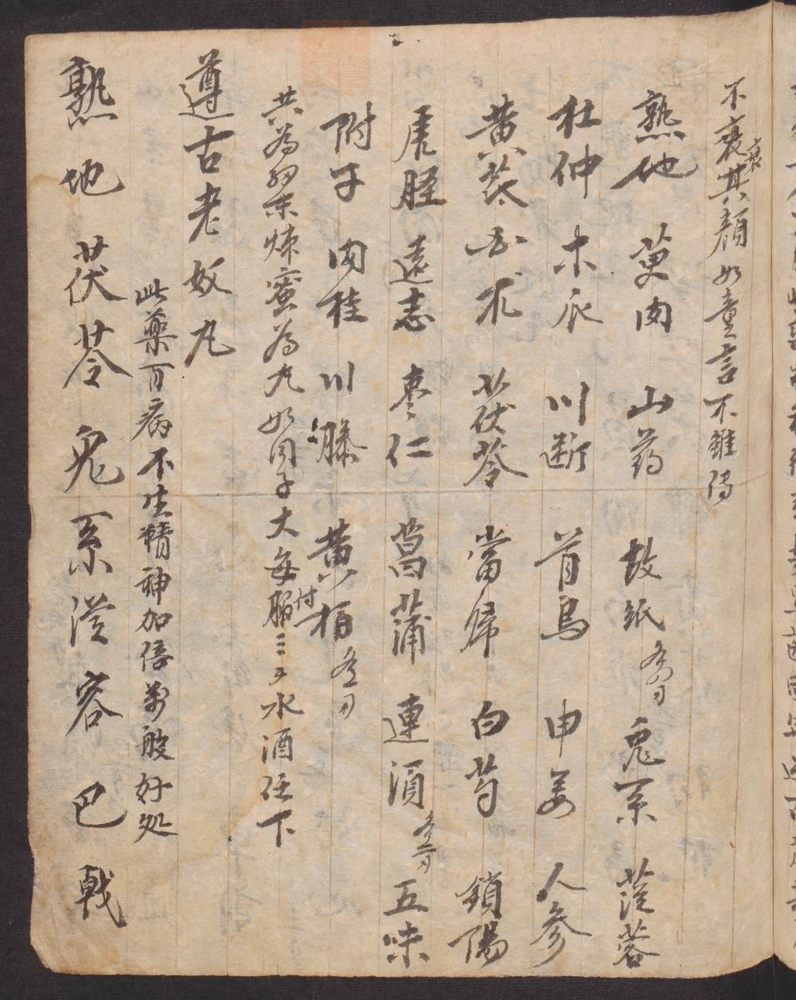 不衰其顏如童言不雖傳
衰
熟地 萸肉 山药 故紙 各刃 兔糸 蓯蓉
杜仲 木瓜 川断 首烏 申姜 人參
黄芪 白朮 茯苓 當归 白芍 鎖陽
虎脛 遠志 枣仁 菖蒲 連須 五味
附子 肉桂 川膝 黄柏 各刃
共為細末煉蜜為丸如同子大每服三刃水酒任下
付
遵古老奴丸
此藥百病不生精神加倍萬般好処
熟地 茯苓 兔糸 蓯容 巴戟